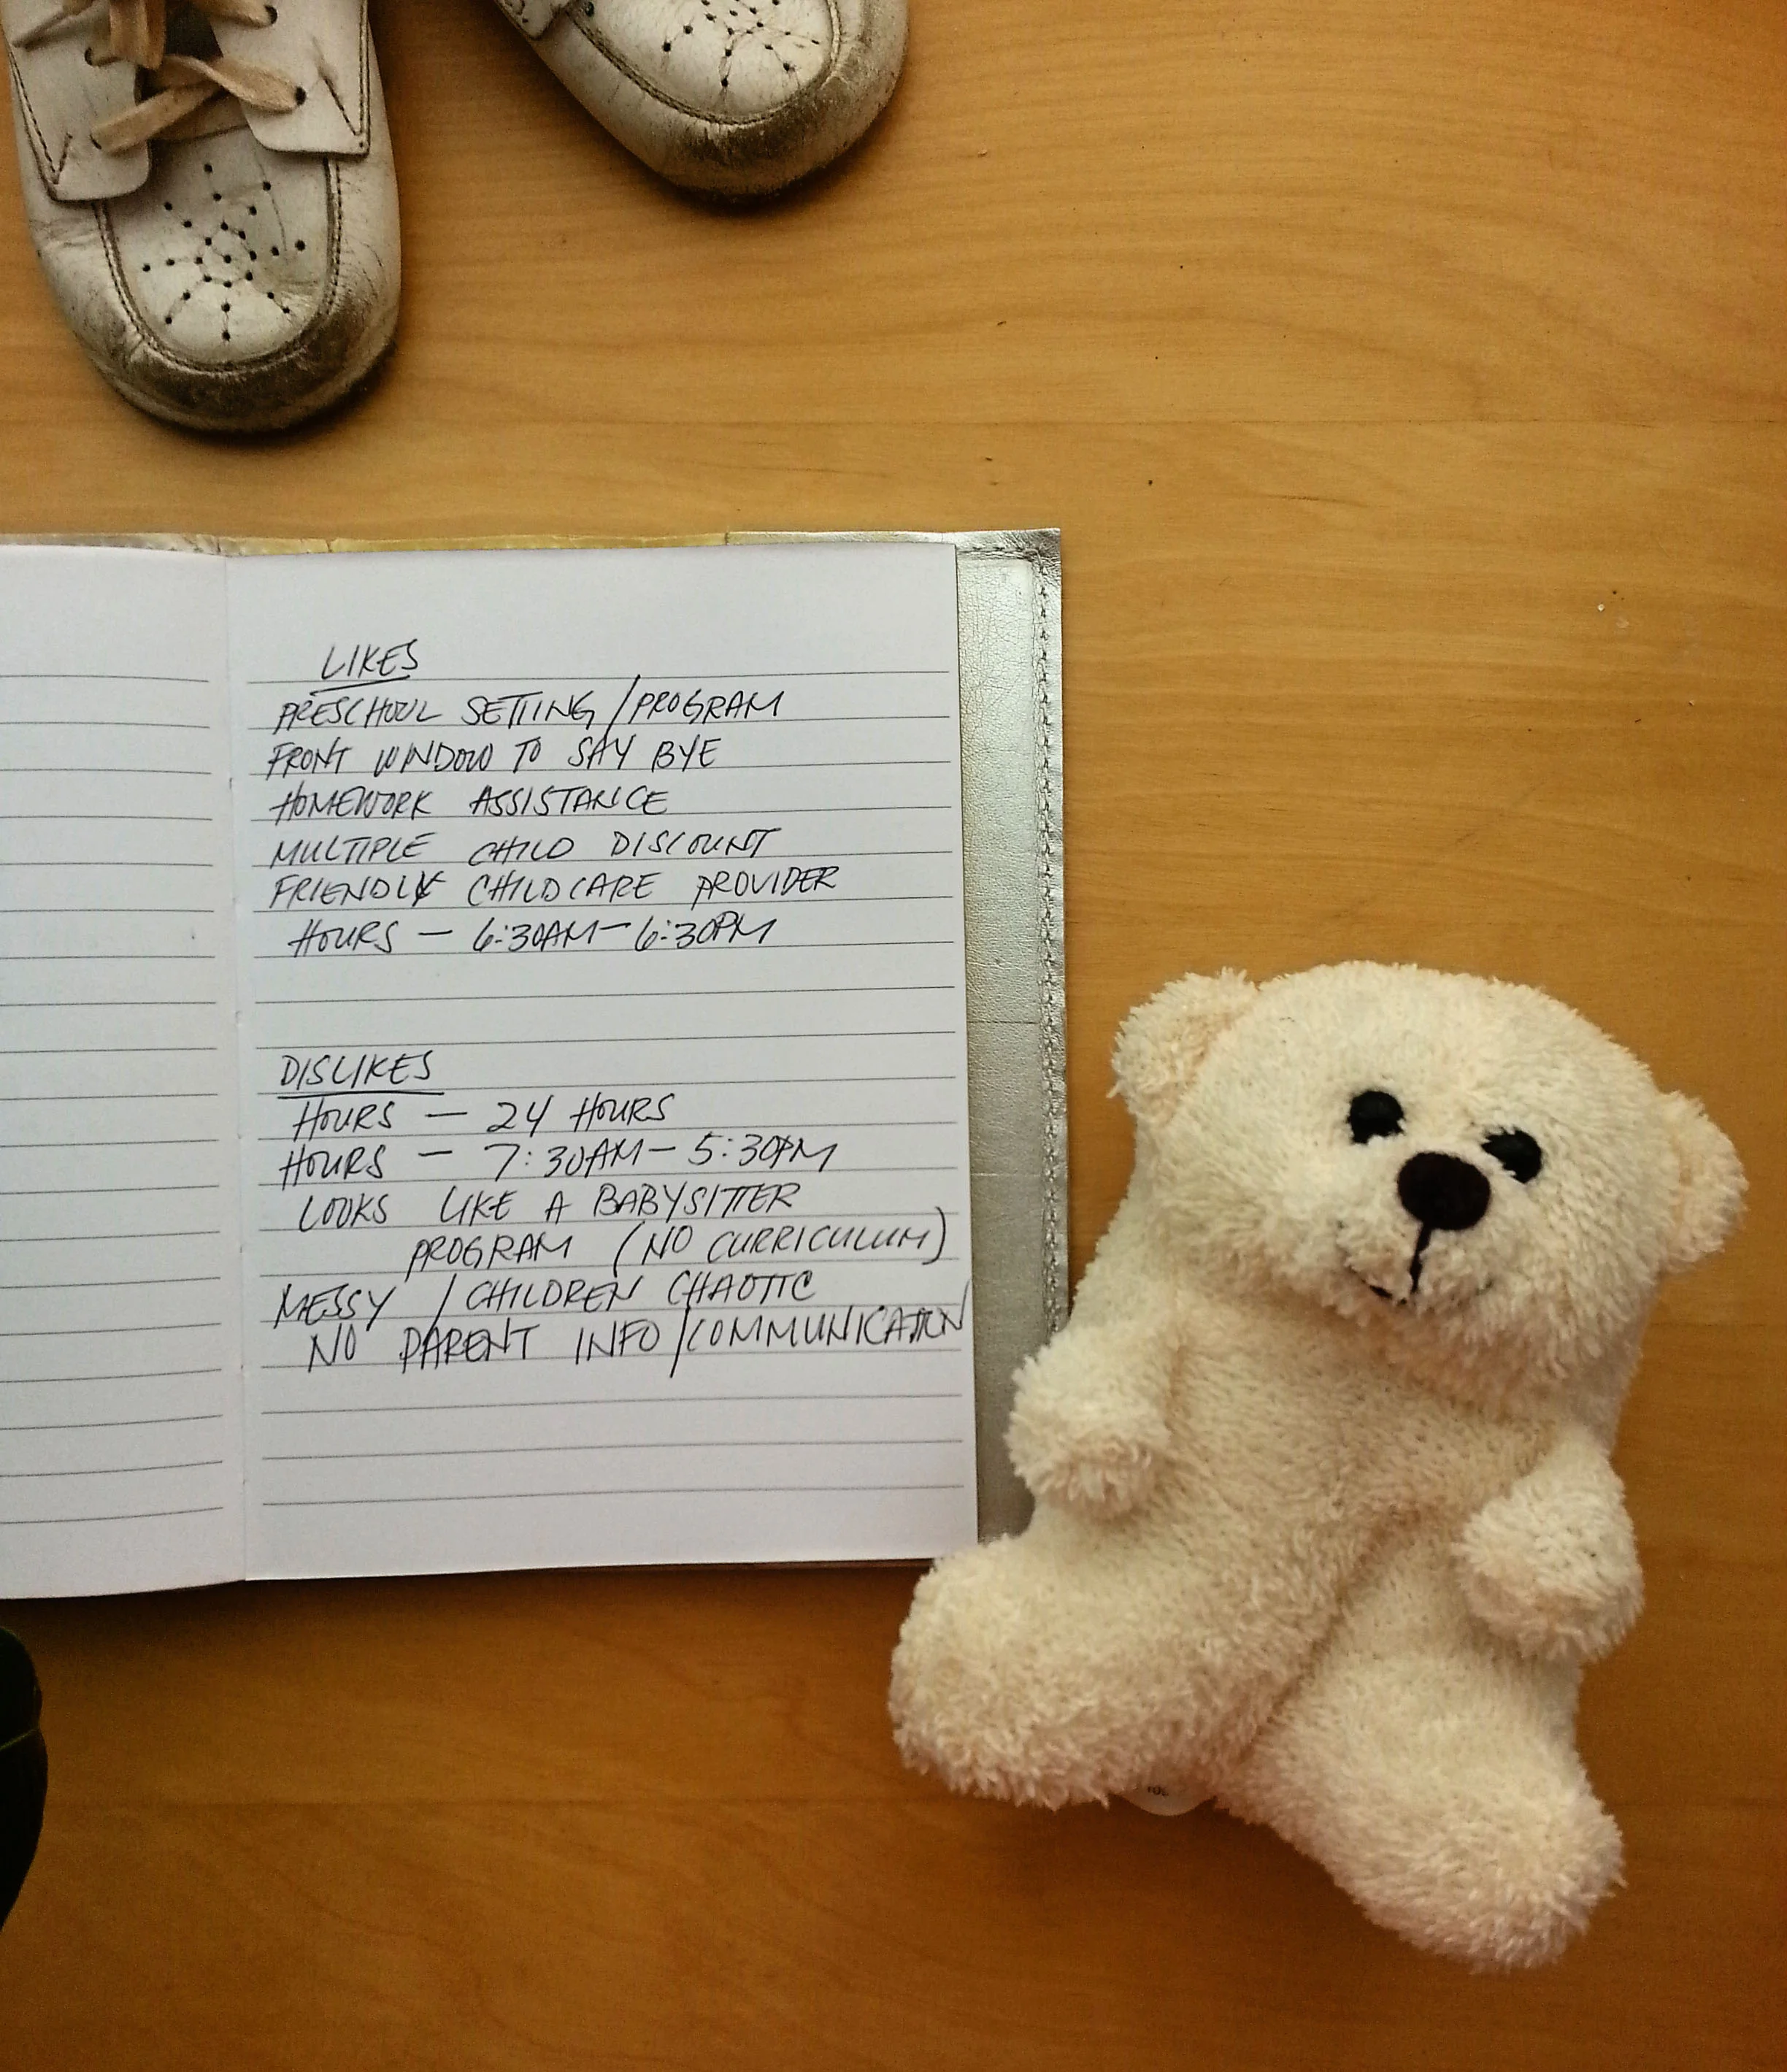 LIKES
PRESCHOOL SETTING / PROGRAM
FRONT WINDOW TO SAY BYE
HOMEWORK ASSISTANCE
MULTIPLE CHILD DISCOUNT
FRIENDLY CHILDCARE PROVIDER
HOURS - 6:30AM - 6:30PM
DISLIKES
HOURS - 24 HOURS
HOURS - 7:30AM - 5:30PM
LOOKS LIKE A BABYSITTER
PROGRAM (NO CURRICULUM)
MESSY / CHILDREN CHAOTIC
NO PARENT INFO / COMMUNICATION